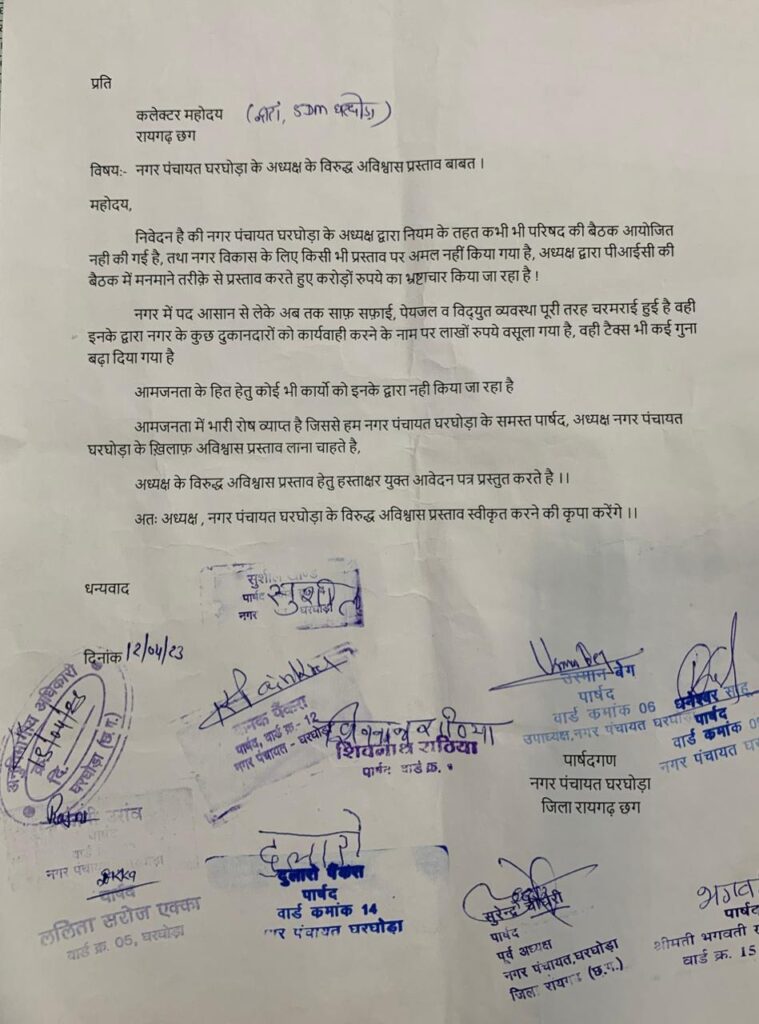 प्रति
कलेक्टर महोदय
रायगढ़ छग
विषय:- नगर पंचायत घरघोड़ा के अध्यक्ष के विरुद्ध अविश्वास प्रस्ताव बाबत ।
महोदय,
निवेदन है की नगर पंचायत घरघोड़ा के अध्यक्ष द्वारा नियम के तहत कभी भी परिषद की बैठक आयोजित
नही की गई है, तथा नगर विकास के लिए किसी भी प्रस्ताव पर अमल नहीं किया गया है, अध्यक्ष द्वारा पीआईसी की
बैठक में मनमाने तरीक़े से प्रस्ताव करते हुए करोड़ों रुपये का भ्रष्टाचार किया जा रहा है !
नगर में पद आसान से लेके अब तक साफ़ सफ़ाई, पेयजल व विद्युत व्यवस्था पूरी तरह चरमराई हुई है वही
इनके द्वारा नगर के कुछ दुकानदारों को कार्यवाही करने के नाम पर लाखों रुपये वसूला गया है, वही टैक्स भी कई गुना
बढ़ा दिया गया है
आमजनता के हित हेतु कोई भी कार्यो को इनके द्वारा नही किया जा रहा है
आमजनता में भारी रोष व्याप्त है जिससे हम नगर पंचायत घरघोड़ा के समस्त पार्षद, अध्यक्ष नगर पंचायत
घरघोड़ा के ख़िलाफ़ अविश्वास प्रस्ताव लाना चाहते है,
अध्यक्ष के विरुद्ध अविश्वास प्रस्ताव हेतु हस्ताक्षर युक्त आवेदन पत्र प्रस्तुत करते है ।।
अतः अध्यक्ष , नगर पंचायत घरघोड़ा के विरुद्ध अविश्वास प्रस्ताव स्वीकृत करने की कृपा करेंगे ।।
धन्यवाद
सुशील
पार्षद
नगर घरघोड़ा
दिनांक 12/04/23
अनुविभागीय अधिकारी
दि.
घरघोड़ा (छ.ग.)
पार्षद, वार्ड क्र.- 12
नगर पंचायत - घरघोड़ा
शिवनाथ राठिया
पार्षद वार्ड क्र.
उस्मान बेग
पार्षद
वार्ड कमांक 06
उपाध्यक्ष,नगर पंचायत
धनेश्वर
पार्षद
वार्ड कमांक
नगर पंचायत
पार्षदगण
नगर पंचायत घरघोड़ा
जिला रायगढ़ छग
नगर
पार्षद
ललिता सरोज एक्का
वार्ड क्र. 05, घरघोड़ा
दुलारो
दुलारो पैंकरा
पार्षद
वार्ड कमांक 14
पंचायत घरघोड़ा
सुरेन्द्र चौधरी
पार्षद
पूर्व अध्यक्ष
नगर पंचायत,घरघोड़ा
जिला रायगढ़ (छ.ग.)
पार्षद
श्रीमती भगवती
वार्ड क्र. 15